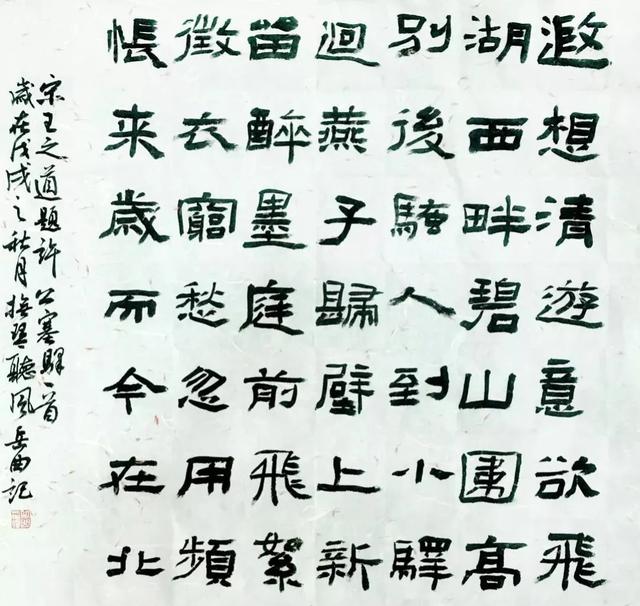 遐想清遊意欲飛
湖西畔碧山圍高
別後騷人到小驛
迴燕子歸壁上新
留醉墨庭前飛絮
徵衣窮愁忽用頻
悵来歲而今在北
宋王之道題許公塞驛一首
歲在戊戌之秋月撫琴聽風岳曲記